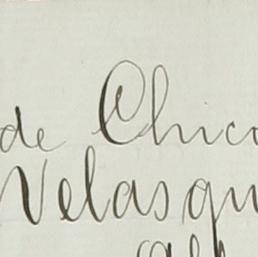 de Chico
Velasqu